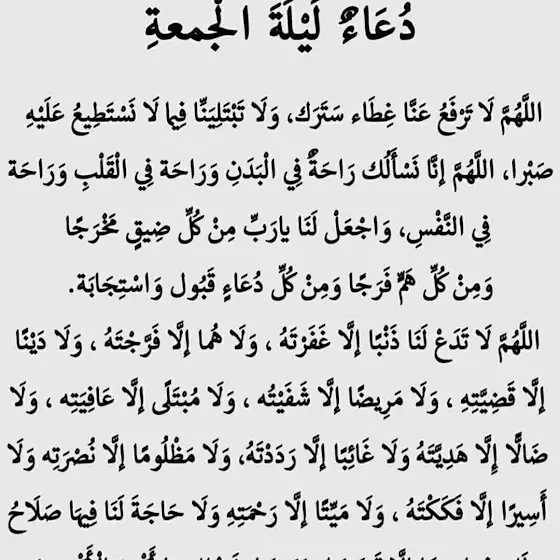 دُعَاءٌ لَيْلَةَ الْجمعةِ
اللَّهُمَّ لَا تَرْفَعُ عَنَّا غِطَاء سَتَرَك، وَلَا تَبْتَلِيَنَّا فِيما لَا نَسْتَطِيعُ عَلَيْهِ
صَبْرا، اللَّهُمَّ إنَّا نَسْأَلُك رَاحَةٌ فِي الْبَدَنِ وَرَاحَة فِي الْقَلْبِ وَرَاحَة
فِي النَّفْسِ، وَاجْعَلْ لَنَا يارَبِّ مِنْ كُلِّ ضِيقٍ مَخْرَجًا
وَمِنْ كُلِّ هَمٍّ فَرَجًا وَمِنْ كُلِّ دُعَاءٍ قَبُول وَاسْتِجَابَة.
اللَّهُمَّ لَا تَدَعْ لَنَا ذَنْبًا إلَّا غَفَرْتَهُ ، وَلَا هُما إلَّا فَرَّجْتَهُ ، وَلَا دَيْنًا
إلَّا قَضِيَّتِهِ ، وَلَا مَرِيضًا إلَّا شَفَيْتُه ، وَلَا مُبْتَلًى إلَّا عَافِيَتِه ، وَلَا
ضَالًّا إِلَّا هَدِيَّتَهُ وَلَا غَائِبًا إلَّا رَدَدْتَهُ، وَلَا مَظْلُومًا إلَّا نُصْرَتِه وَلَا
أَسِيرًا إلَّا فَكَكْتَهُ ، وَلَا مَيِّتًا إلَّا رَحْمَتِهِ وَلَا حَاجَةَ لَنَا فِيهَا صَلَاحُ